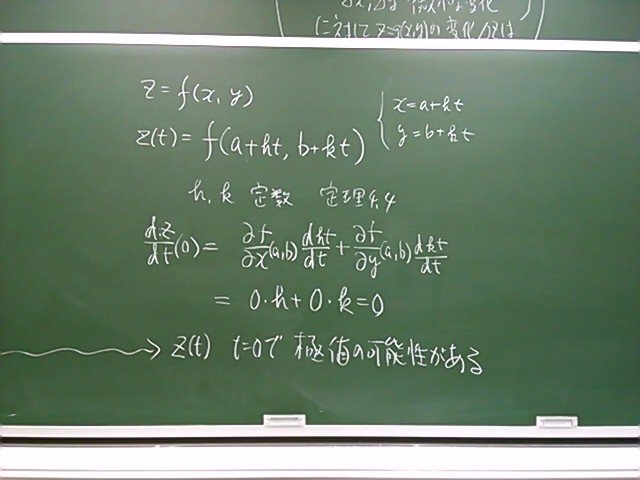 に対して z=f(x,y)の変化
z=f(x, y)
{ x=a+ht
y=b+kt
z(t)=f(a+ht, b+kt)
h, k 定数 定理4.4
dz/dt(0) = ∂f/∂x(a,b) dht/dt + ∂f/∂y(a,b) dkt/dt
= 0·h+0·k=0
→ z(t) t=0で 極値の可能性がある